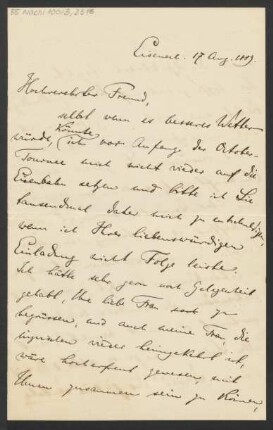 Eisenach. 17 Aug. 1889.
Hochverehrter Freund,
selbst wenn es besseres Wetter
würde, könnte ich vor Anfang der October-
Tournee mich nicht wieder auf die
Eisenbahn setzen und bitte ich Sie
tausendmal daher mich zu entschuldigen,
wenn ich Ihrer liebenswürdigen
Einladung nicht Folge leiste.
Ich hätte sehr gern Gelegenheit
gehabt, Ihre liebe Frau zu
begrüssen, und auch meine Frau, die
wieder heimgekehrt ist,
wäre hocherfreut gewesen, mit
Ihnen zusammen sein zu können,